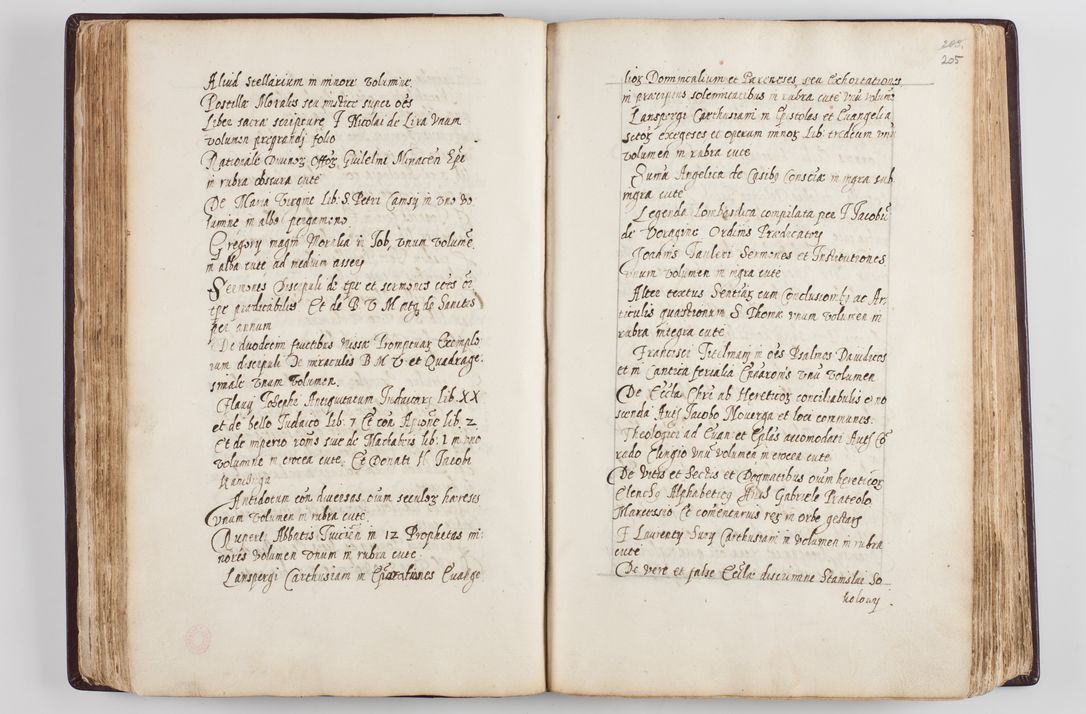 Aliud stellarium in minore volumine.
Postilla Moralis seu mistice super oēs
Liber sacrā scripturē F Nicolai de Lira vnum
volumen prægrandj folio
Rationale diuinoꝝ offoꝝ Guilelmi Minacēn Epi
in rubra obscura cute
De Maria Virgine Lib: S. Petri Camsy in vno vo
lumine in albo pergameno
Gregory magni Moralia in Iob, vnum volume,
in alba cute ad medium asserj
Sermones Discipuli de tpe et sermones cōes oī
tpe prædicabiles Et de B V M atqꝫ de Sanctis
per annum
De duodecim fructibus missæ Promptuaꝝ Exemplo
rum discipuli De miraculis B M V et Quadrage
simale vnum volumen.
Flauij Iosephi Antiquitatum Iudaicorꝫ lib. XX
et de bello Iudaico lib: 7 Et cōn Apionē lib. 2.
Et de imperio rōnis siue de Machabæis lib: 1 in vno
volumine in crocea cute. Et Donati H Iacobi
Antidotum cōn diuersas oium seculoꝝ hæreses
vnum volumen in rubra cute
Ruperti Abbatis Tuicien in 12 Prophetas mi
nores volumen vnum in rubra cute.
Lanspergi Carthusiam in Enarrationes Euange
205.
205
lioꝝ Dominicalium et Pareneses, seu Exhortationes
in præcipuis solennitatibus in rubra cute vnū volum
Lanspergi Carthusiani in Epistolas et Euangelia
sctoꝝ exegeses et operum minoꝝ Lib: tredecim vnū
volumen in rubra cute
Suma Angelica de Casibꝫ Consciæ in nigra sub
nigra cute
Legenda Lombardica compilata per F Iacobū
de Voragine Ordinis Prædicatorꝫ
Ioannis Tauleri Sermones et Institutiones
vnum volumen in nigra cute
Alter textus Sentiaꝝ cum Conclusionibꝫ ac Ar
ticulis quæstionum S Thomæ vnum volumen in
rubra integra cute
Francisci Titelmanj in oēs Psalmos Dauidicos
et in Cantica ferialia Enāronis vnū volumen
De Eccla Chri ab Hereticoꝝ conciliabulis dino
scenda Autɧ Iacobo Nouerga et loci communes
Theologici ad Euan: et Eplās accomodati Autɧ Cō
rado Clingio vnū volumen in crocea cute
De vitis et Sectis et Dogmatibus oium hereticoꝝ
Elenchꝰ Alphabeticꝰ Gabriele Prateolo
Marcossio Et comentarius reꝝ in orbe gestarꝫ
F Laurenty Surÿ Carthusiani in volumen in rubra
cute
De veræ et falsæ Ecclæ discrimine Stanislai So
kolowij